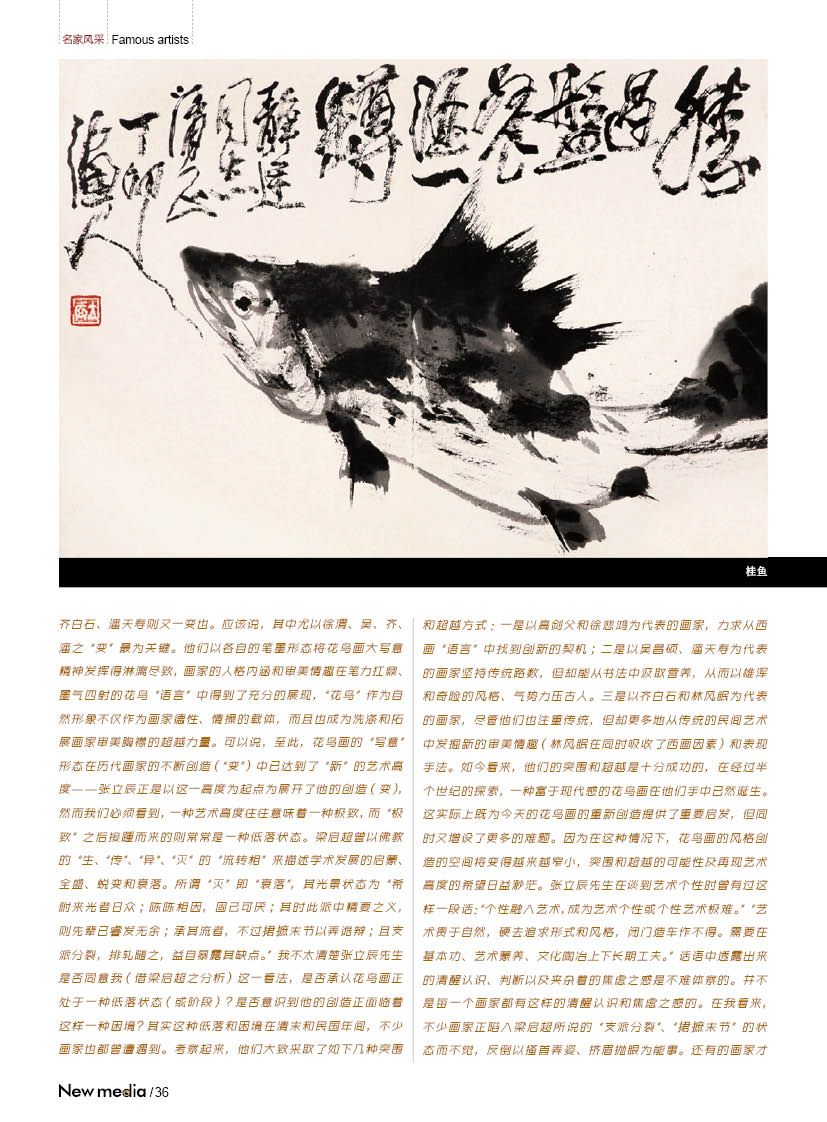 名家风采 Famous artists
桂鱼
齐白石、潘天寿则又一变也。应该说，其中尤以徐渭、吴、齐、
潘之“变”最为关键。他们以各自的笔墨形态将花鸟画大写意
精神发挥得淋漓尽致，画家的人格内涵和审美情趣在笔力扛鼎、
墨气四射的花鸟“语言”中得到了充分的展现，“花鸟”作为自
然形象不仅作为画家德性、情操的载体，而且也成为洗涤和拓
展画家审美胸襟的超越力量。可以说，至此，花鸟画的“写意”
形态在历代画家的不断创造（“变”）中已达到了“新”的艺术高
度——张立辰正是以这一高度为起点为展开了他的创造（变），
然而我们必须看到，一种艺术高度往往意味着一种极致，而“极
致”之后接踵而来的则常常是一种低落状态。梁启超曾以佛教
的“生、“传”、“异”、“灭”的“流转相”来描述学术发展的启蒙、
全盛、蜕变和衰落。所谓“灭”即“衰落”，其光景状态为“希
附末光者日众；陈陈相因，固已可厌；其时此派中精要之义，
则先辈已睿发无余；承其流者，不过捃摭末节以弄诡辩；且支
派分裂，排轧随之，益自暴露其缺点。”我不太清楚张立辰先生
是否同意我（借梁启超之分析）这一看法，是否承认花鸟画正
处于一种低落状态（或阶段）？是否意识到他的创造正面临着
这样一种困境？其实这种低落和困境在清末和民国年间，不少
画家也都曾遭遇到。考察起来，他们大致采取了如下几种突围
和超越方式：一是以高剑父和徐悲鸿为代表的画家，力求从西
画“语言”中找到创新的契机；二是以吴昌硕、潘天寿为代表
的画家坚持传统路数，但却能从书法中汲取营养，从而以雄浑
和奇险的风格、气势力压古人。三是以齐白石和林风眠为代表
的画家，尽管他们也注重传统，但却更多地从传统的民间艺术
中发掘新的审美情趣（林风眠在同时吸收了西画因素）和表现
手法。如今看来，他们的突围和超越是十分成功的，在经过半
个世纪的探索，一种富于现代感的花鸟画在他们手中已然诞生。
这实际上既为今天的花鸟画的重新创造提供了重要启发，但同
时又增设了更多的难题。因为在这种情况下，花鸟画的风格创
造的空间将变得越来越窄小，突围和超越的可能性及再现艺术
高度的希望日益渺茫。张立辰先生在谈到艺术个性时曾有过这
样一段话：“个性融入艺术，成为艺术个性或个性艺术极难。”“艺
术贵于自然，硬去追求形式和风格，闭门造车作不得。需要在
基本功、艺术素养、文化陶冶上下长期工夫。”话语中透露出来
的清醒认识、判断以及夹杂着的焦虑之感是不难体察的。并不
是每一个画家都有这样的清醒认识和焦虑之感的。在我看来，
不少画家正陷入梁启超所说的“支派分裂”、“捃摭末节”的状
态而不觉，反倒以搔首弄姿、挤眉抛眼为能事。还有的画家才
New media / 36